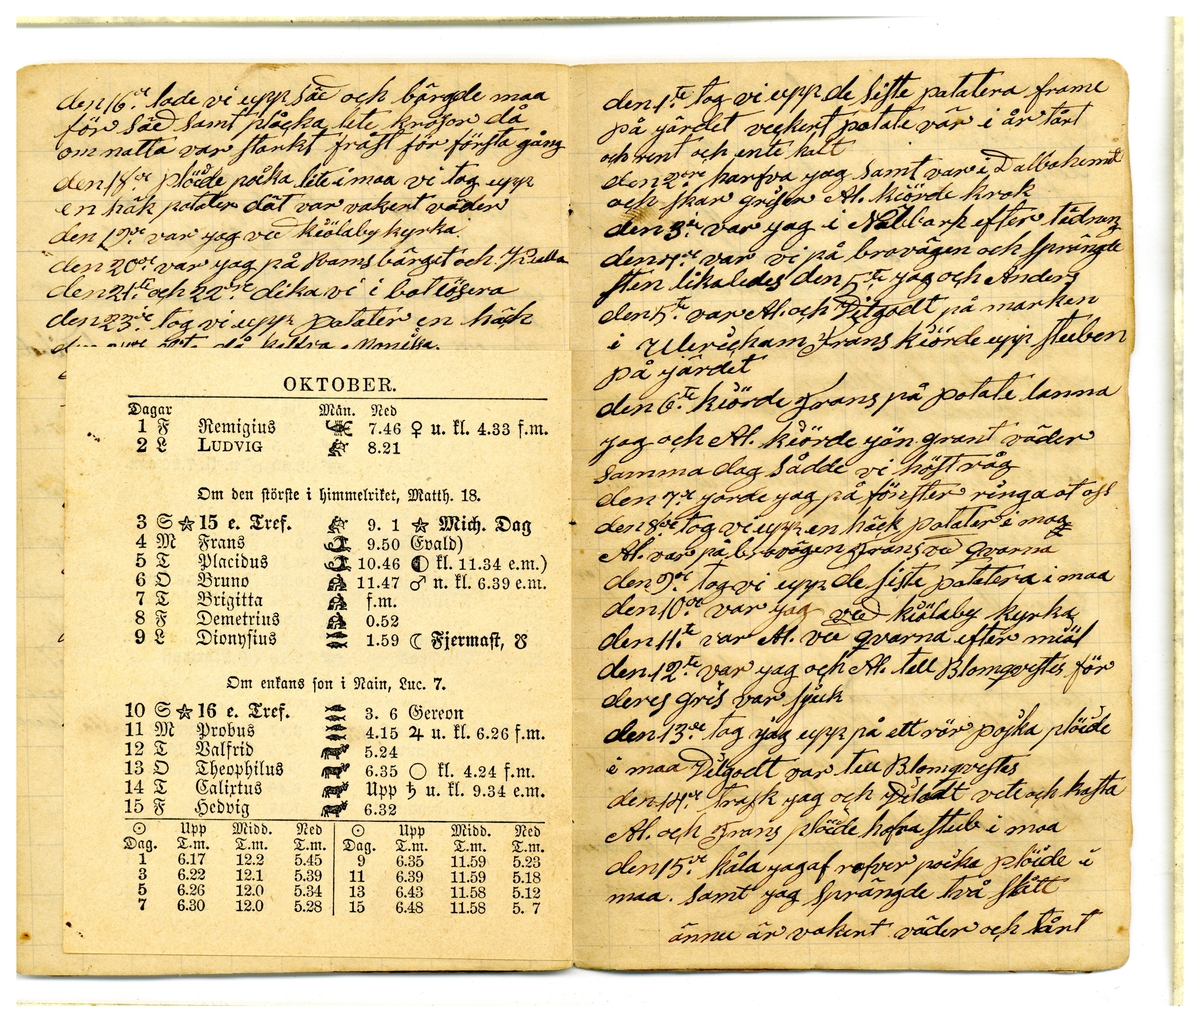 den 16de lade vi upp säd och bärgde maa
för säd samt plåcka lite krösor då
om natta var starkt fråst för första gång
den 18de plöide poika lite i maa vi tog upp
en häk potater dåt var vakert väder
den 19de var jag ved kiölaby kyrka
den 20de var jag på Ramsbärget och
den 21te och 22de dika vi i
den 23de tog vi upp potater en häck
OKTOBER.
Dagar Mån. Ned
1 F Remigius 7.46 ♀ u. kl. 4.33 f.m.
2 L LUDVIG 8.21
Om den störste i himmelriket, Matth. 18.
3 S ☆ 15 e. Tref. 9. 1 ☆ Mich. Dag
4 M Frans 9.50 Evald)
5 T Placidus 10.46 ◐ kl. 11.34 e.m.)
6 O Bruno 11.47 ♂ n. kl. 6.39 e.m.
7 T Brigitta f.m.
8 F Demetrius 0.52
9 L Dionysius 1.59 ☾ Fjermast, ☋
Om enkans son i Nain, Luc. 7.
10 S ☆ 16 e. Tref. 3. 6 Gereon
11 M Probus 4.15 ♃ u. kl. 6.26 f.m.
12 T Valfrid 5.24
13 O Theophilus 6.35 ○ kl. 4.24 f.m.
14 T Calixtus Upp ♄ u. kl. 9.34 e.m.
15 F Hedvig 6.32
☉ Upp Midd. Ned ☉ Upp Midd. Ned
Dag. T.m. T.m. T.m. Dag. T.m. T.m. T.m.
1 6.17 12.2 5.45 9 6.35 11.59 5.23
3 6.22 12.1 5.39 11 6.39 11.59 5.18
5 6.26 12.0 5.34 13 6.43 11.58 5.12
7 6.30 12.0 5.28 15 6.48 11.58 5. 7
den 1te tog vi upp de siste patatera frame
på järdet veckert potate vär i år tårt
och rent och ente kalt
den 2dre harfva jag samt var i Dalbahemt
och skar grisen Al. kiörde krok
den 3ie var jag i Nabbarp efter tidning
den 4de var vi på brovägen och sprängde
sten likaledes den 5te jag och Anders
den 5te var Al. och Vilgodt på marken
i Ulericham Frans kiörde upp stuben
på järdet
den 6te kiörde Frans på potate lanna
jag och Al. kiörde jön grant väder
samma dag sådde vi höst råg
den 7de jorde jag på fönster ringa ot oss
den 8de tog vi upp en häck potater i mog
Al. var på brovägen Frans ved qvarna
den 9de tog vi upp de siste potatera i maa
den 10de var jag ved kiölaby kyrka
den 11te var Al. ved qvarna efter miöl
den 12te var jag och Al. tell Blomqvstes för
deres gris var sjuk
den 13de tog jag upp på ett rör pojka plöide
i maa Vilgodt var tell Blomqvstes
den 14de trask jag och Vilgodt vete och kasta
Al. och Frans plöide hafra stub i maa
den 15de håla jag af rofver poika plöide i
maa. samt jag sprängde två skått
ännu är vakert väder och tårt